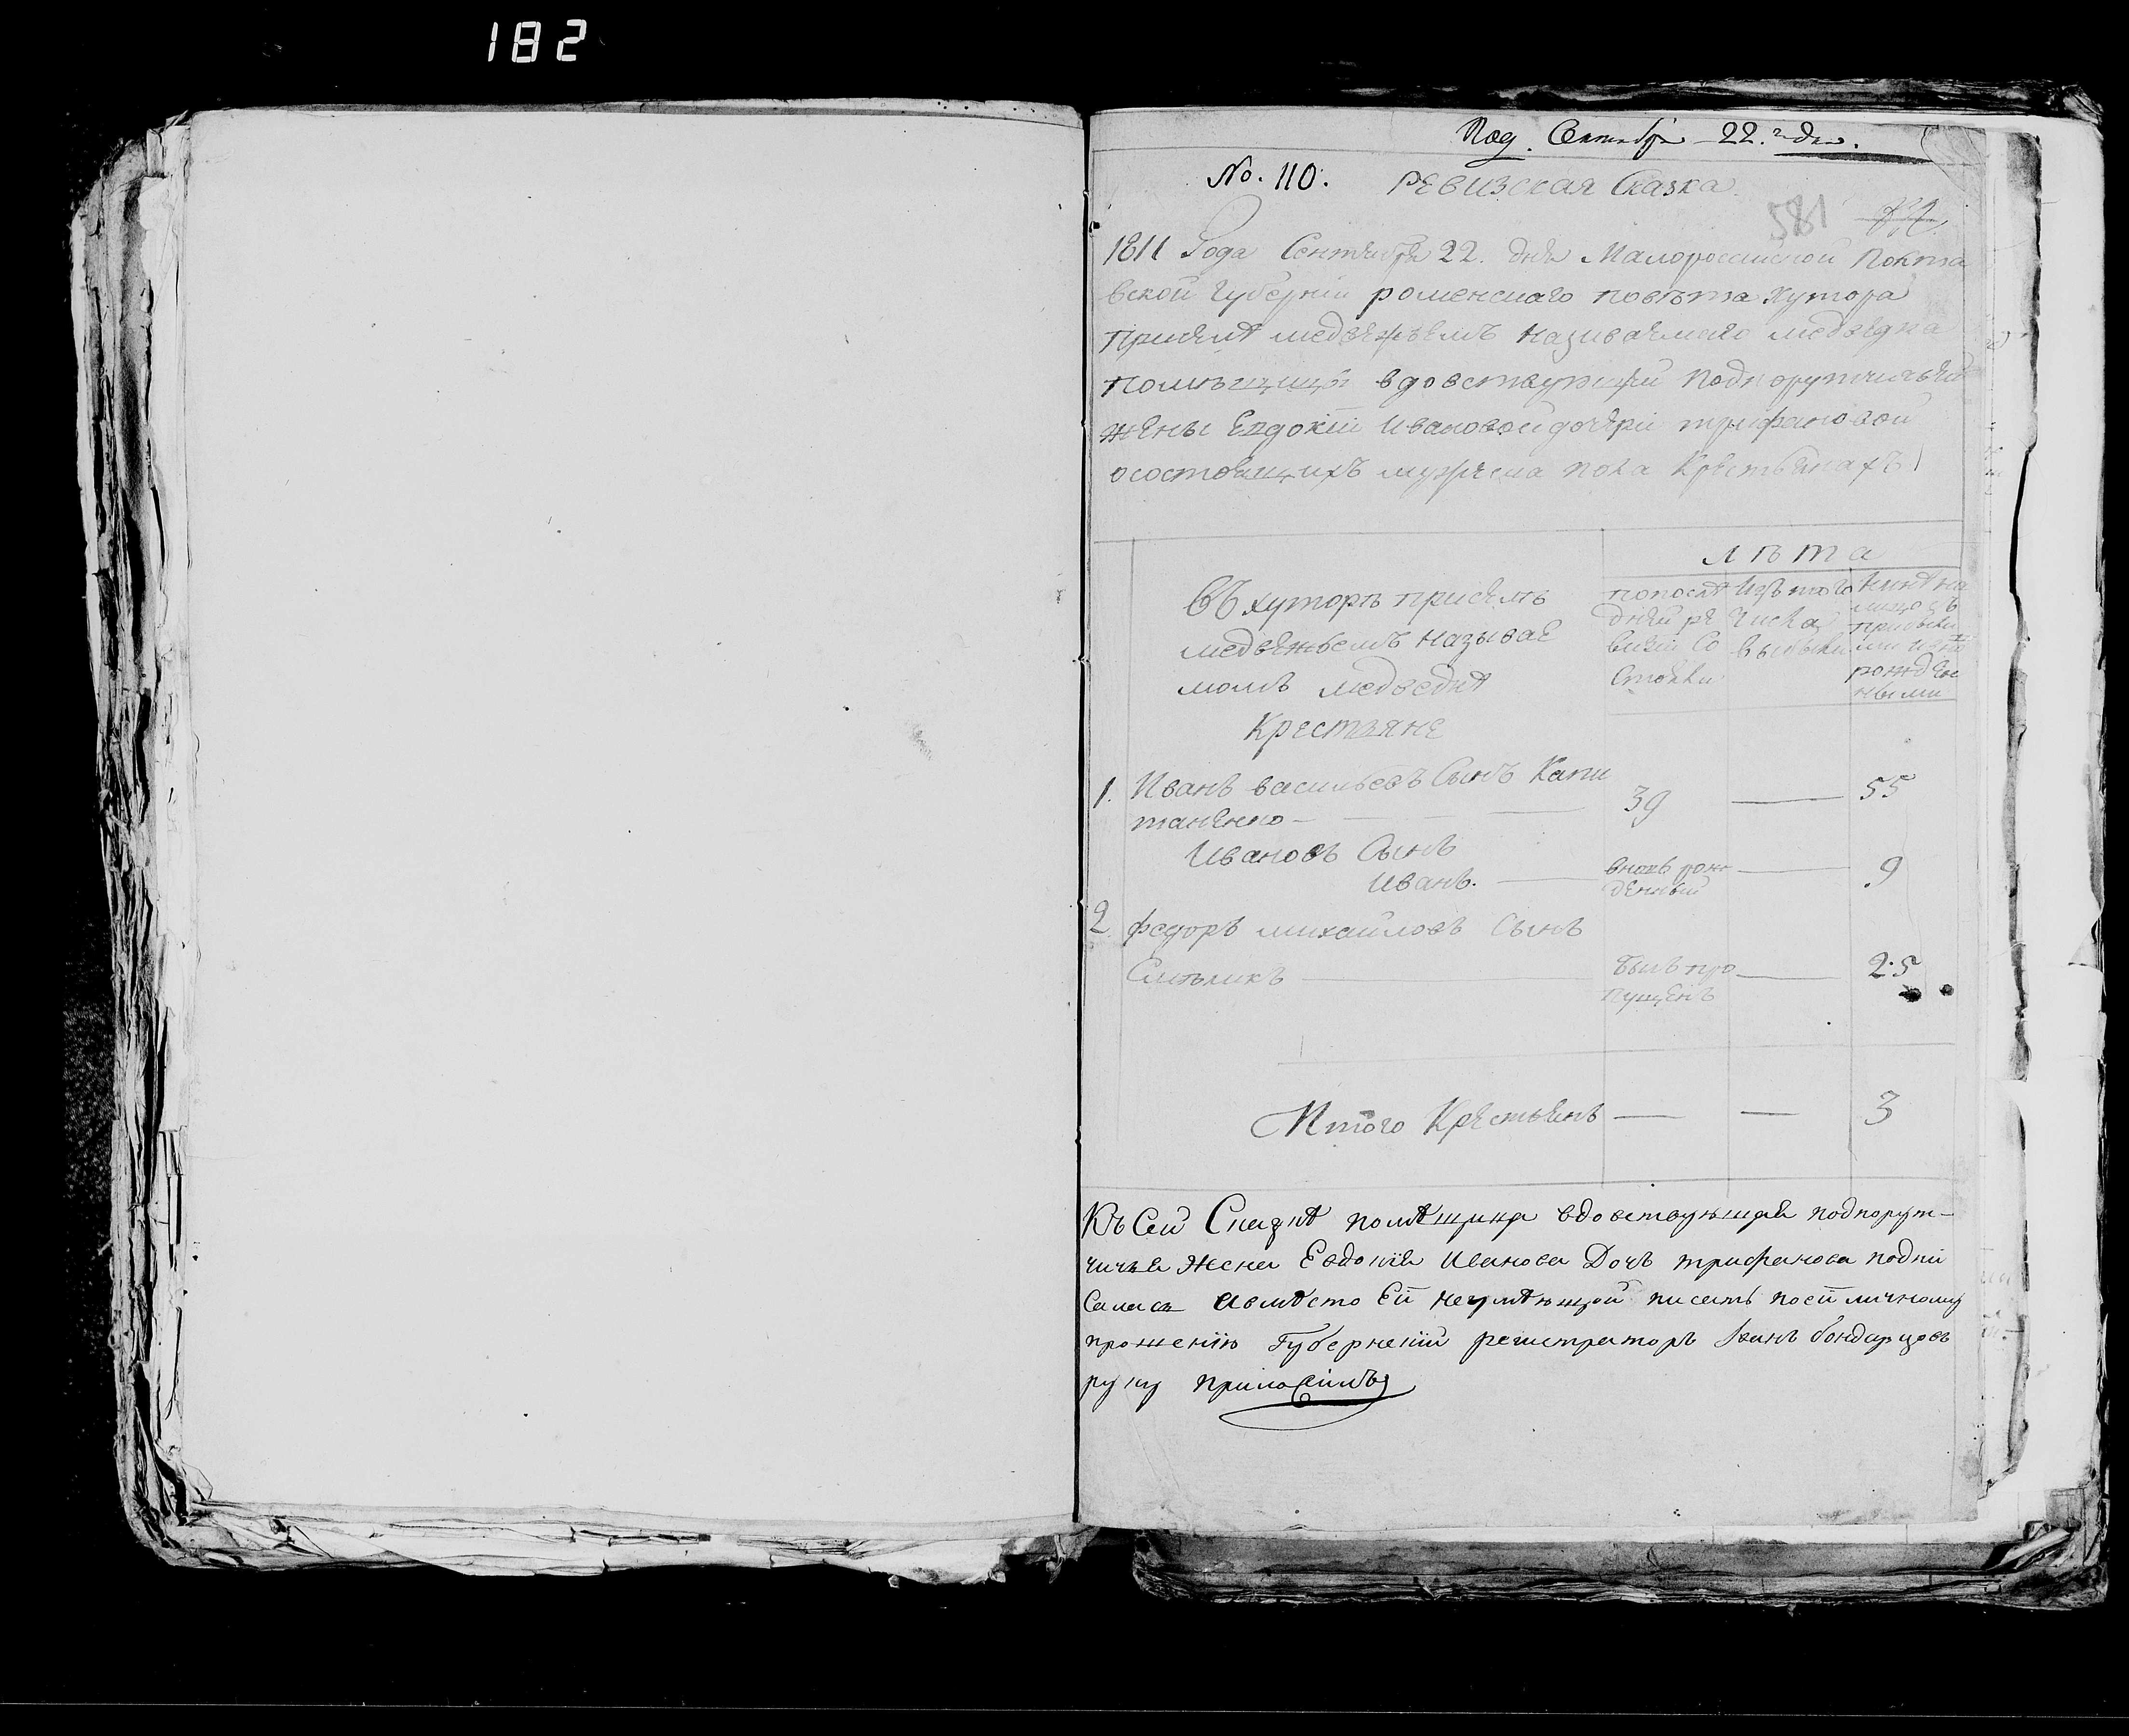 182
Под. Сентября 22.го дня.
No. 110. РЕВИЗская Сказка
581
1811 Года Сентября 22. дня Малороссийской Полта
вской губернiи роменского повѣта хутора
присѣлѣ медвежъемъ називаемаго медведка
помѣщицы вдовствующей подпорутчичьей
жены Евдокiи Ивановой дочери трифановой
осостоящихъ мужеска пола Крестьянахъ
лѣта
Въ хуторѣ приселѣ
медвежьемъ називае
момъ медведкѣ
Крестьяне
попослѣ
дней ре
визiи Со
стояли
Изъ того
числа
выбыли
Нынѣ на
лицо съ
прибыли
ми и
рожден
ными
1. Иванъ васильевъ Сынъ Капи
таненко 39 55
Ивановъ Сынъ
Иванъ. вновь рож
денный 9
2 федоръ михайловъ Сынъ
былъ про
пущенъ 25
Итого Крестьянъ 3
Къ Сей Сказкѣ помѣщица вдовствующая подпорут-
чичья жена Евдокiя Иванова Дочь трифанова подпи
салась авмѣсто Ей неумѣющой писать поеи личному
прошенiю Губернскiй регистраторъ Иванъ бондарцовъ
руку приложилъ